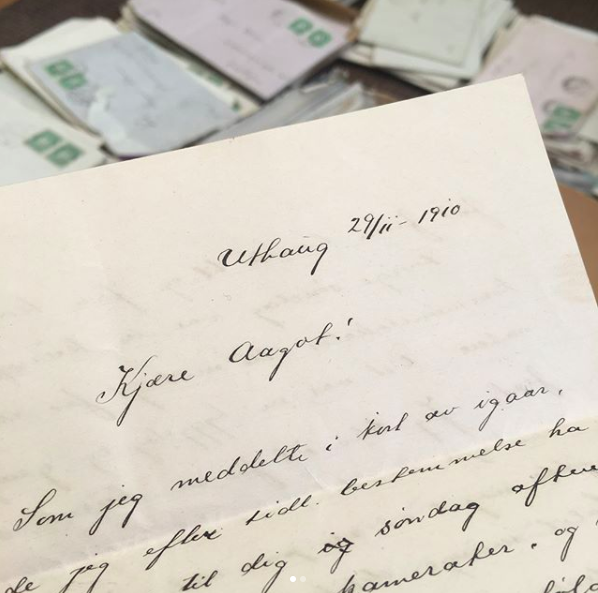 Uthaug 29/11 - 1910
Kjære Aagot!
Som jeg meddelte i kort av igaar,
de jeg efter tidl. bestemmelse ha
til dig søndag aften
kameraker. og